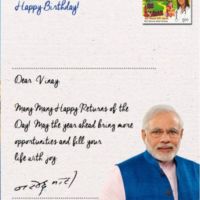 Happy Birthday!
Dear Vinay,
Many Many Happy Returns of the
Day! May the year ahead bring more
opportunities and fill your
life with joy.